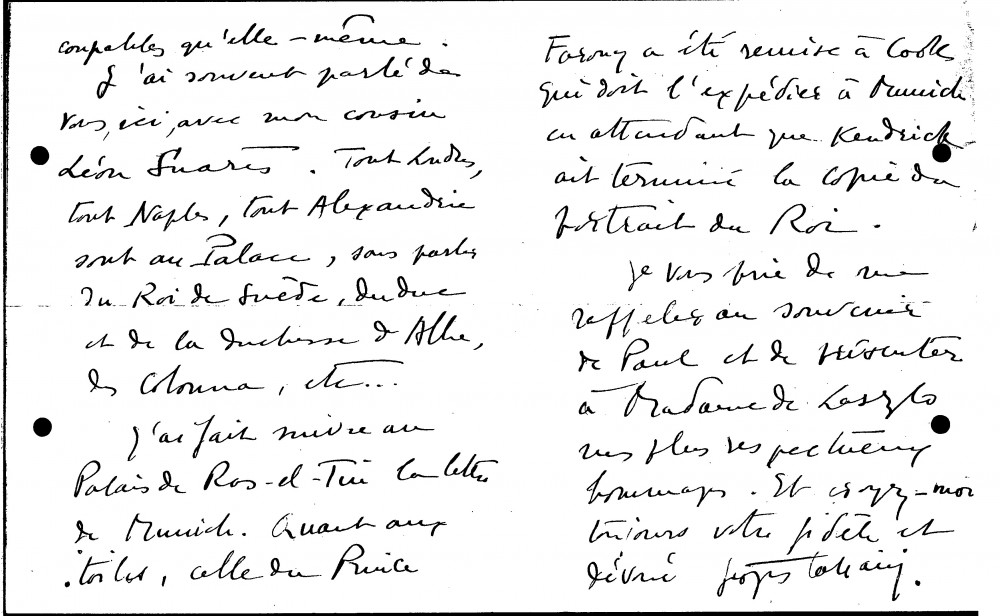 coupables qu'elle-même.
J'ai souvent parlé de
vous, ici, avec mon cousin
Léon Suarès. Tout Londres,
tout Naples, tout Alexandrie
sont au Palace, sans parler
du Roi de Suède, du duc
et de la duchesse d'Albe,
des Colonna, etc...
J'ai fait suivre au
Palais de Ras-el-Tin la lettre
de Munich. Quant aux
toiles, celle du Prince
Farouq a été remise à Cook
qui doit l'expédier à Munich
en attendant que Kendrick
ait terminé la copie du
portrait du Roi.
Je vous prie de me
rappeler au souvenir
de Paul et de présenter
à Madame de Laszlo
mes plus respectueux
hommages. Et croyez-moi
toujours votre fidèle et
dévoué